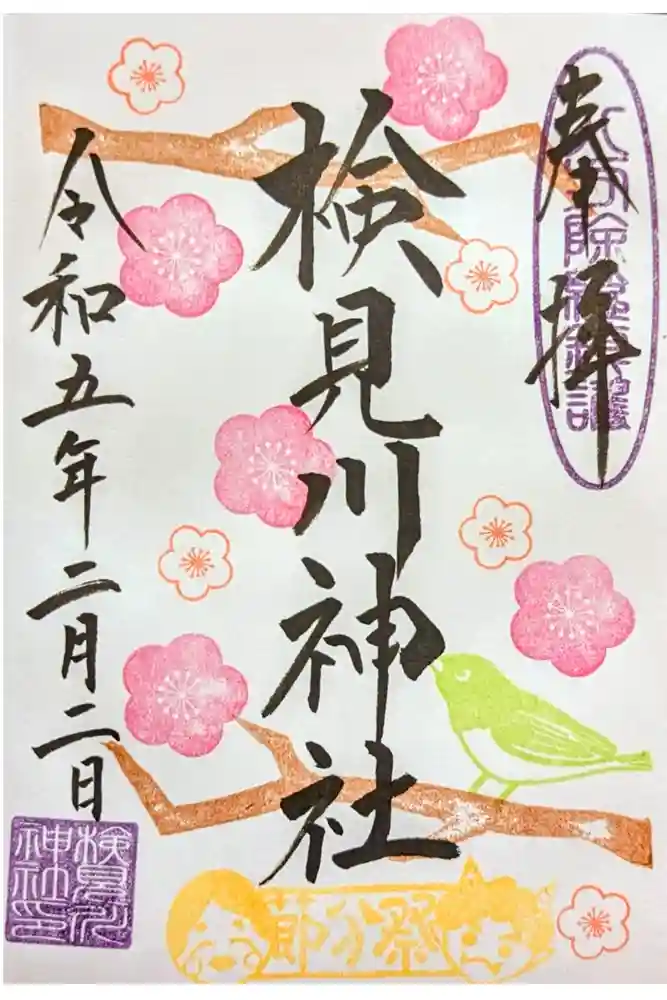 奉拝
八方除総鎮護
検見川神社
令和五年二月二日
検見川神社印
節分祭